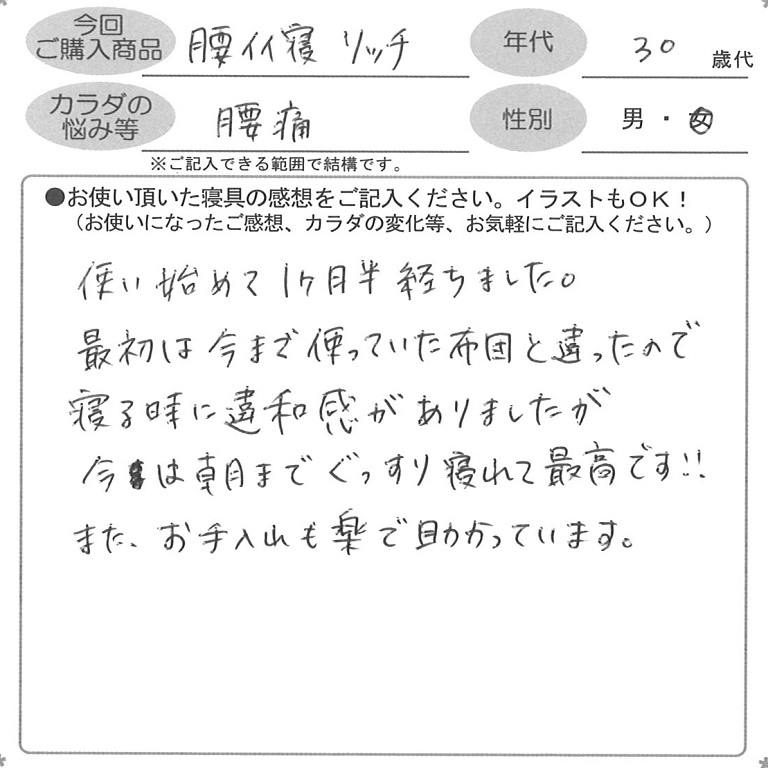 今回
ご購入商品 腰イイ寝 リッチ 年代 30 歳代
カラダの
悩み等 腰痛 性別 男・女
※ご記入できる範囲で結構です。
●お使い頂いた寝具の感想をご記入ください。イラストもOK!
(お使いになったご感想、カラダの変化等、お気軽にご記入ください。)
使い始めて1ヶ月半経ちました。
最初は今まで使っていた布団と違ったので
寝る時に違和感がありましたが
今は朝までぐっすり寝れて最高です!!
また、お手入れも楽で助かっています。